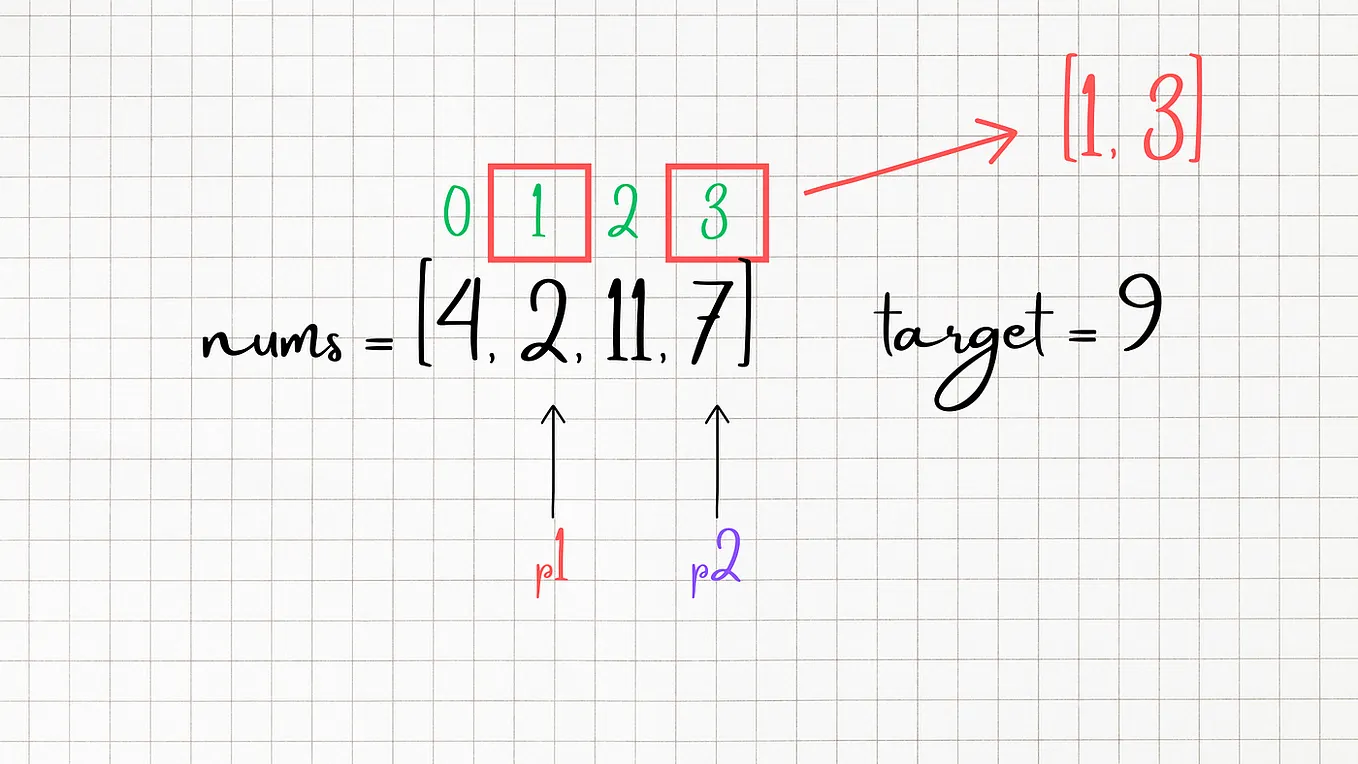 [1, 3]
0 1 2 3
nums = [4, 2, 11, 7] target = 9
p1 p2